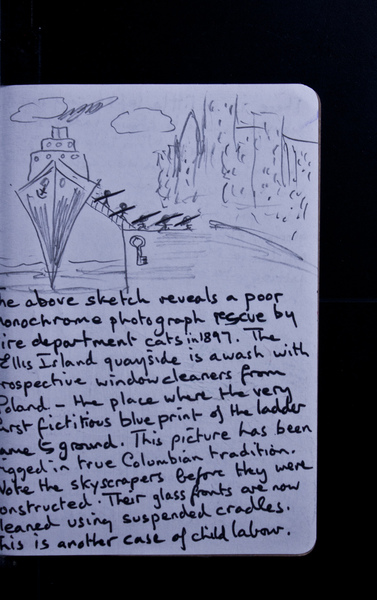 he above sketch reveals a poor
onochrome photograph rescue by
ire department cats in 1897. The
Ellis Island quayside is awash with
rospective window cleaners from
Poland - the place where the very
irst fictitious blue print of the ladder
ame to ground. This picture has been
igged in true Columbian tradition.
Note the skyscrapers before they were
onstructed. Their glass fronts are now
leaned using suspended cradles.
his is another case of child labour.